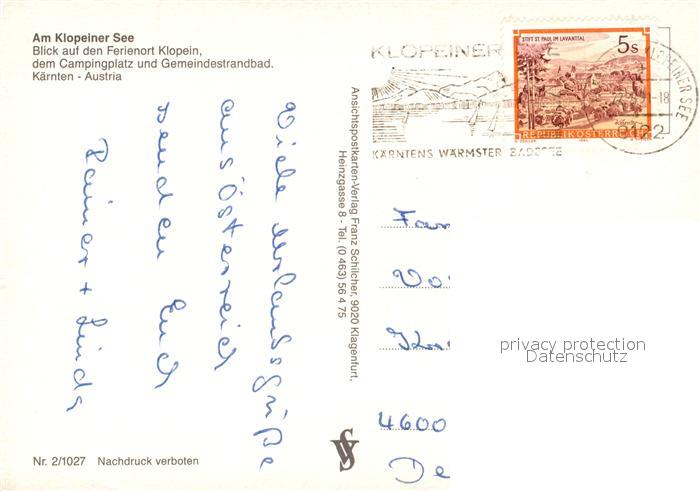 Am Klopeiner See
Blick auf den Ferienort Klopein,
dem Campingplatz und Gemeindestrandbad.
Kärnten - Austria
Viele Urlaubsgrüße
aus Österreich
senden Euch
Rainer + Linda
Nr. 2/1027 Nachdruck verboten
Ansichtspostkarten-Verlag Franz Schilcher, 9020 Klagenfurt,
Heinzgasse 8 - Tel. (0 463) 56 4 75
KLOPEINER
KÄRNTENS WÄRMSTER
STIFT ST. PAUL IM LAVANTTAL
5s
REPUBLIK ÖSTERREICH
KLOPEINER SEE
-18
9122
Fam
Vo
4600
De
privacy protection
Datenschutz